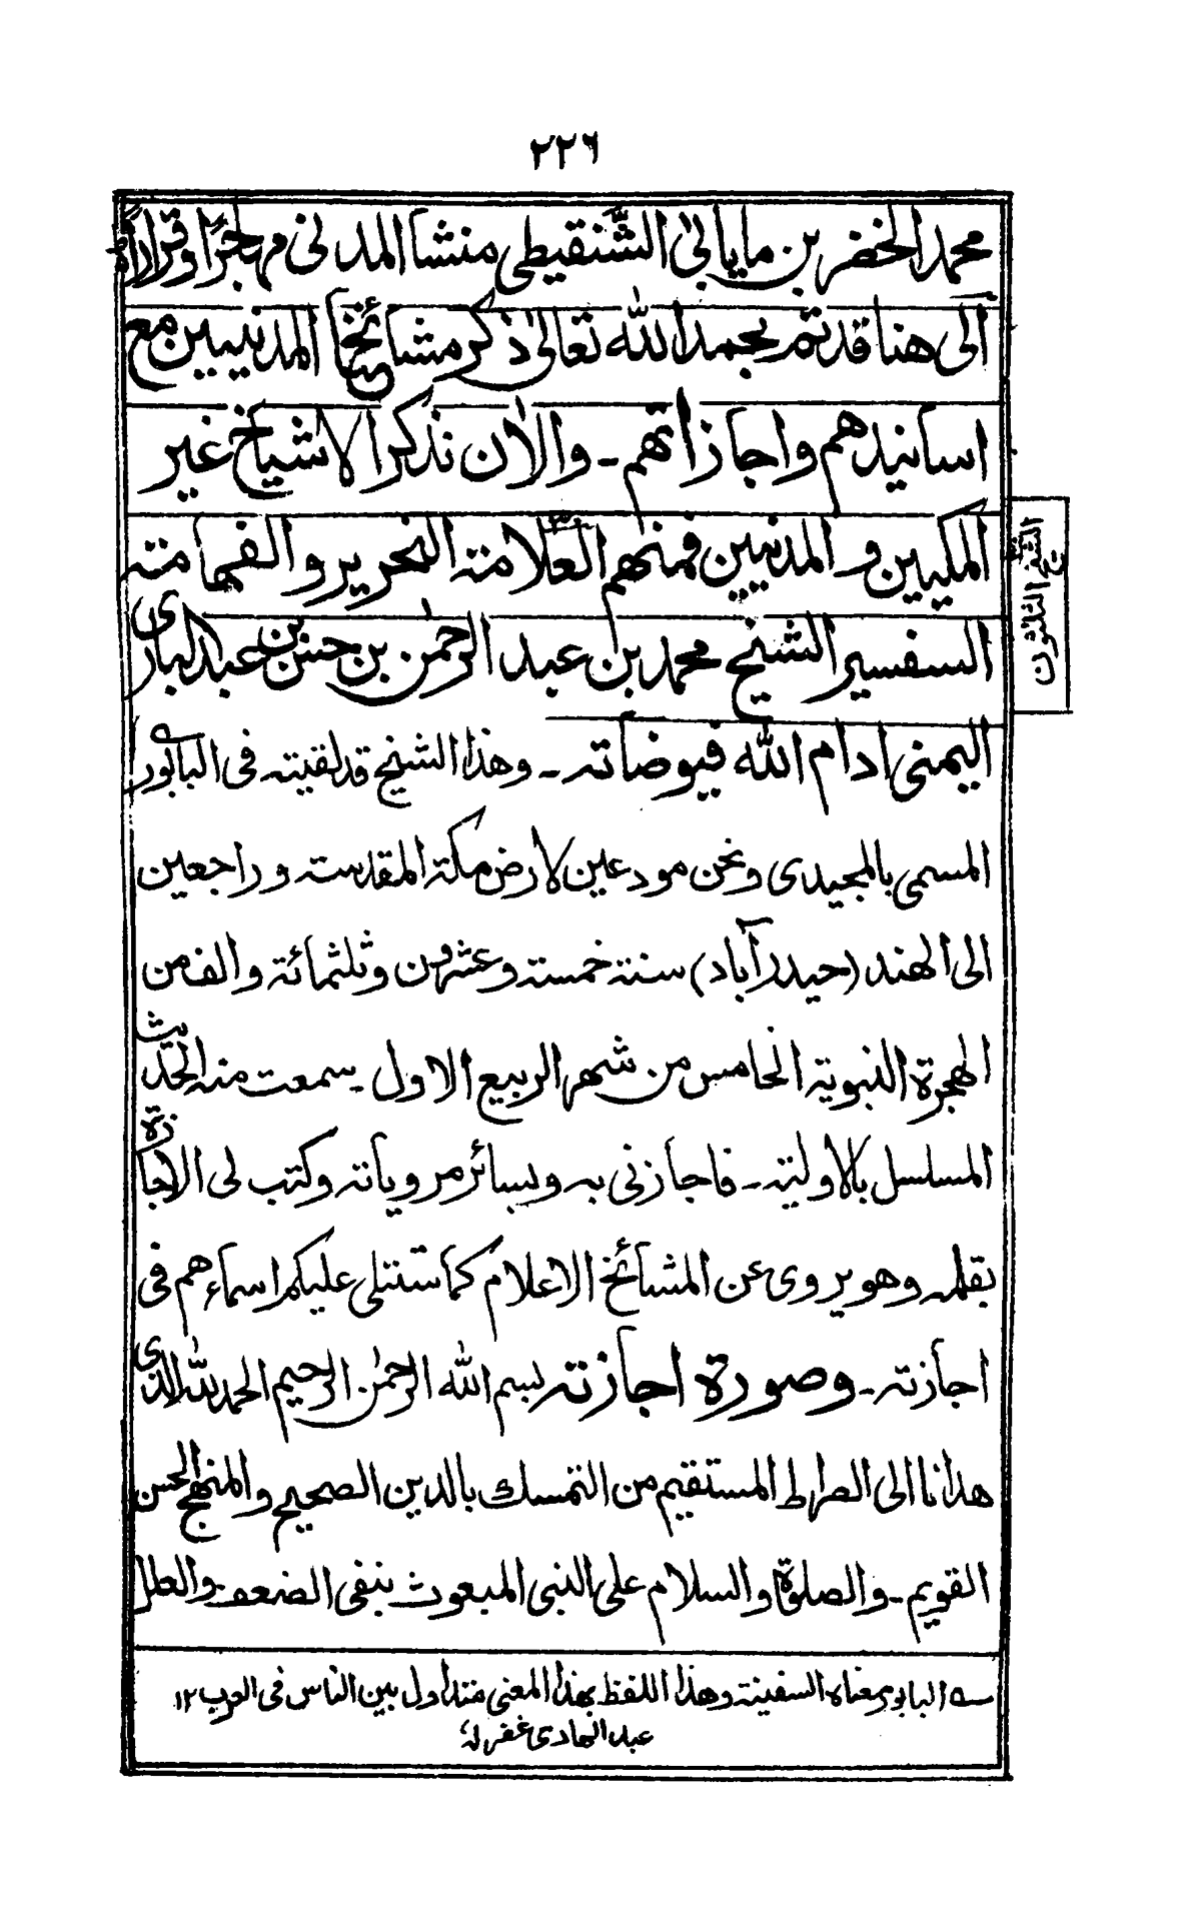 ٢٢٦
محمد الخضر بن مايابىٰ الشنقيطى منشا المدنى مهاجرًا وقرارًا
الى هنا قد تم بحمد الله تعالىٰ ذكر مشائخنا المدنيين مع
اسانيدهم واجازاتهم ـ والاٰن نذكر الاشياخ غير
المكيين و المدنيين فمنهم العلّامة النحرير و الفهامة
السفسير الشيخ محمد بن عبد الرحمٰن بن حسن بن عبد البارى
الشيخ الثلثون
اليمنى ادام الله فيوضاته ـ وهذا الشيخ قد لقيته فى البابور
المسمى بالمجيدى ونحن مودعين لارض مكة المقدسة و راجعين
الى الهند (حيدرآباد) سنة خمسة وعشرون وثلثمائة والف من
الهجرة النبوية الخامس من شهر الربيع الاول ـ سمعت منه الحديث
المسلسل بالاولية ـ فاجازنى به وبسائر مروياته وكتب لى الاجازة
بقلمه وهو يروى عن المشائخ الاعلام كما ستتلى عليكم اسماءهم فى
اجازته ـ وصورة اجازته بسم الله الرحمٰن الرحيم الحمد لله الذى
هدانا الى الصراط المستقيم من التمسك بالدين الصحيح والمنهج الحسن
القويم ـ والصلوة والسلام على النبى المبعوث بنفى الضعف والعلل
ــه البابور معناه السفينة وهذا اللفظ بهذا المعنى متداول بين الناس فى العرب ١٢
عبد الهادى غفر له